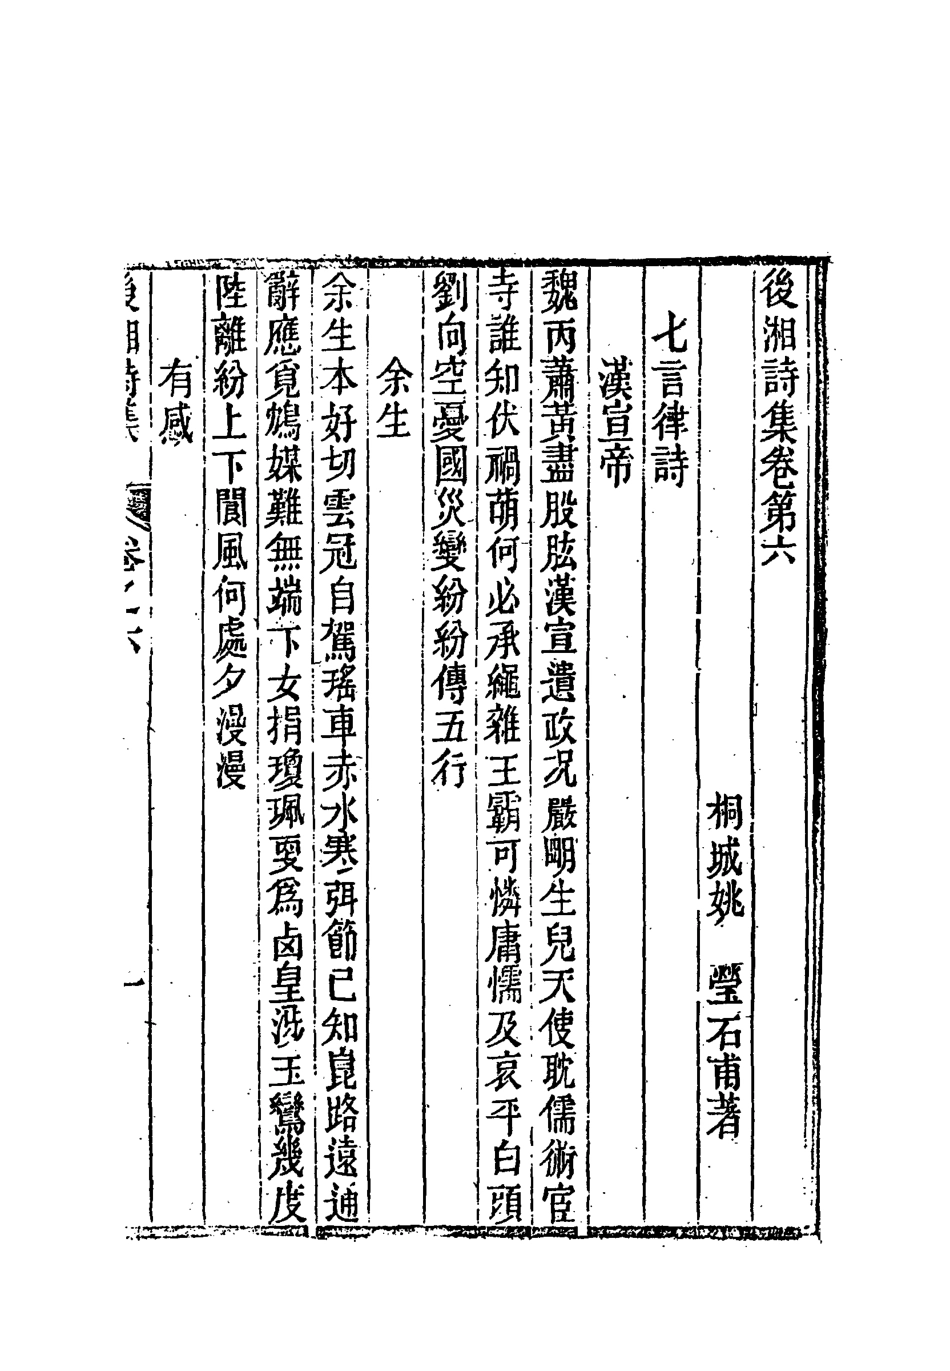 後湘詩集卷第六
桐城姚　瑩石甫著
七言律詩
漢宣帝
魏丙蕭黃盡股肱漢宣遺政况嚴明生兒天使耽儒術宦
寺誰知伏禍萌何必承繩雜王霸可憐庸懦及哀平白頭
劉向空憂國災變紛紛傳五行
余生
余生本好切雲冠自駕瑤車赤水寒弭節已知崑路遠通
辭應覓鴆媒難無端下女捐瓊珮耍爲卤皇洗玉鸞幾度
陸離紛上下閬風何處夕漫漫
有感
後湘詩集　卷之六　一